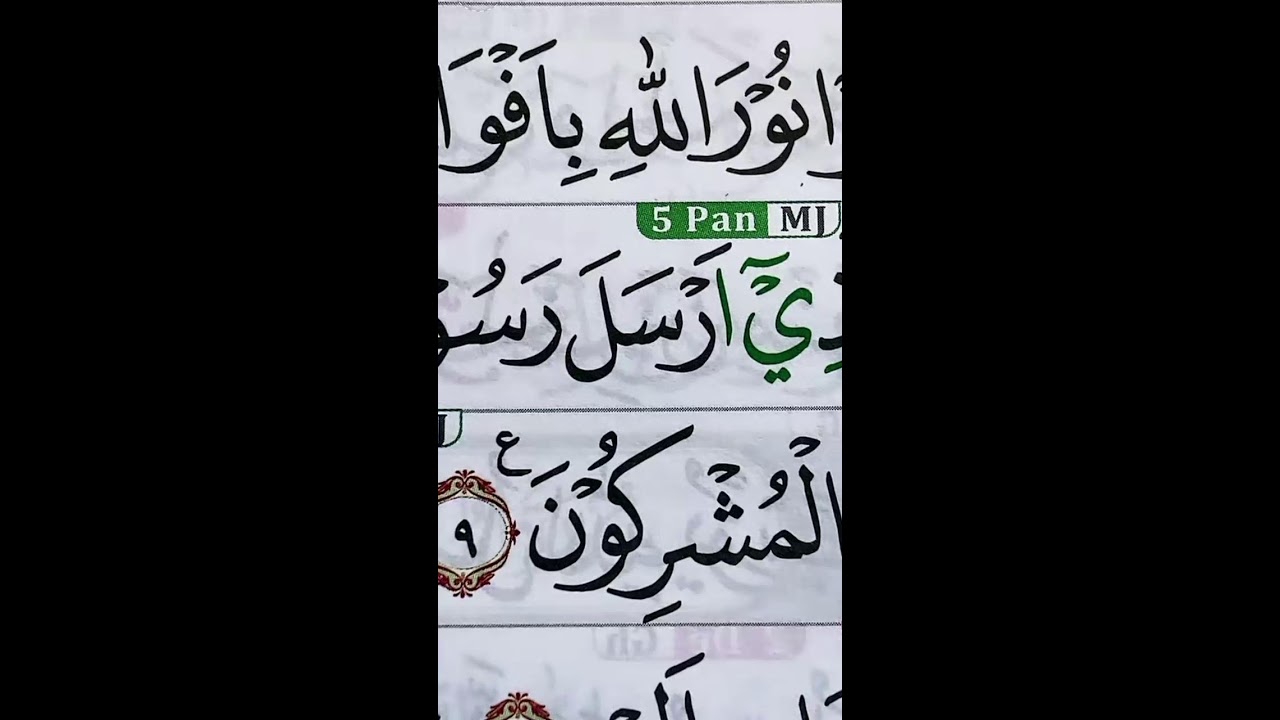 ا نُوْرَ اللّٰهِ بِاَفْوَا
5 Pan MJ
ذِيْٓ اَرْسَلَ رَسُوْ
الْمُشْرِكُوْنَ ࣖ ٩